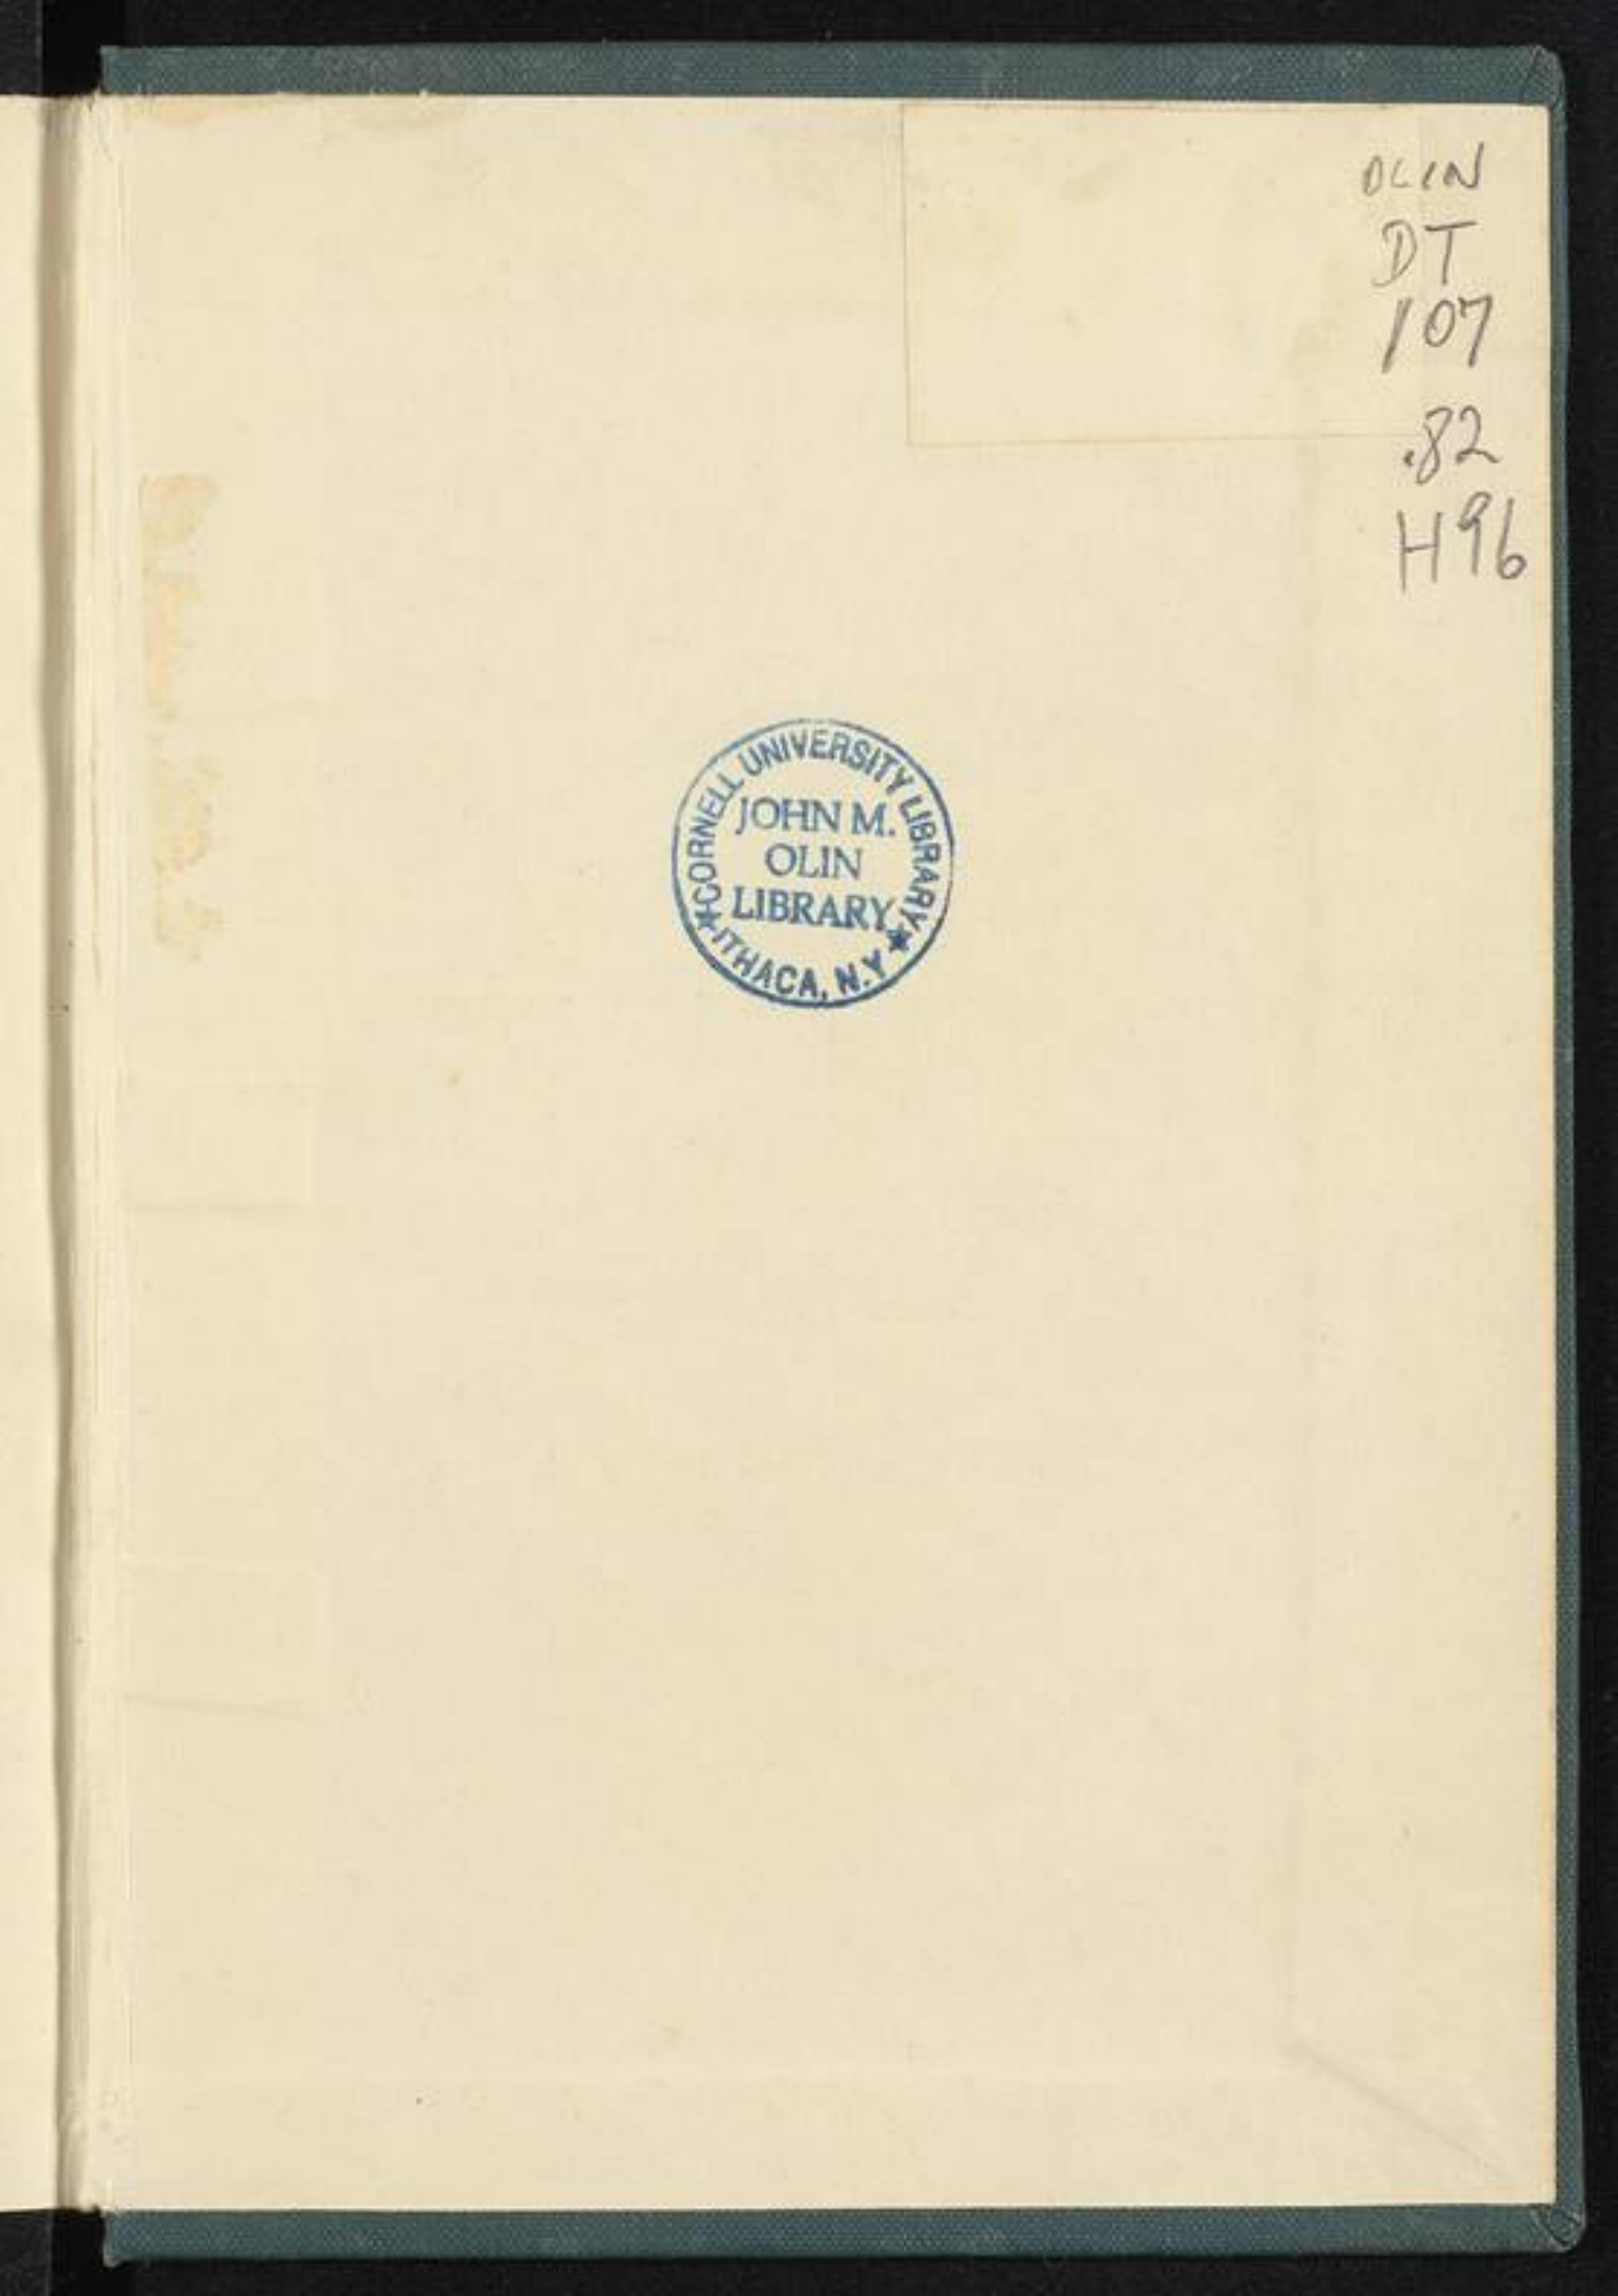 OLIN
DT
107
.82
H96
CORNELL UNIVERSITY LIBRARY
JOHN M.
OLIN
LIBRARY
ITHACA, N.Y